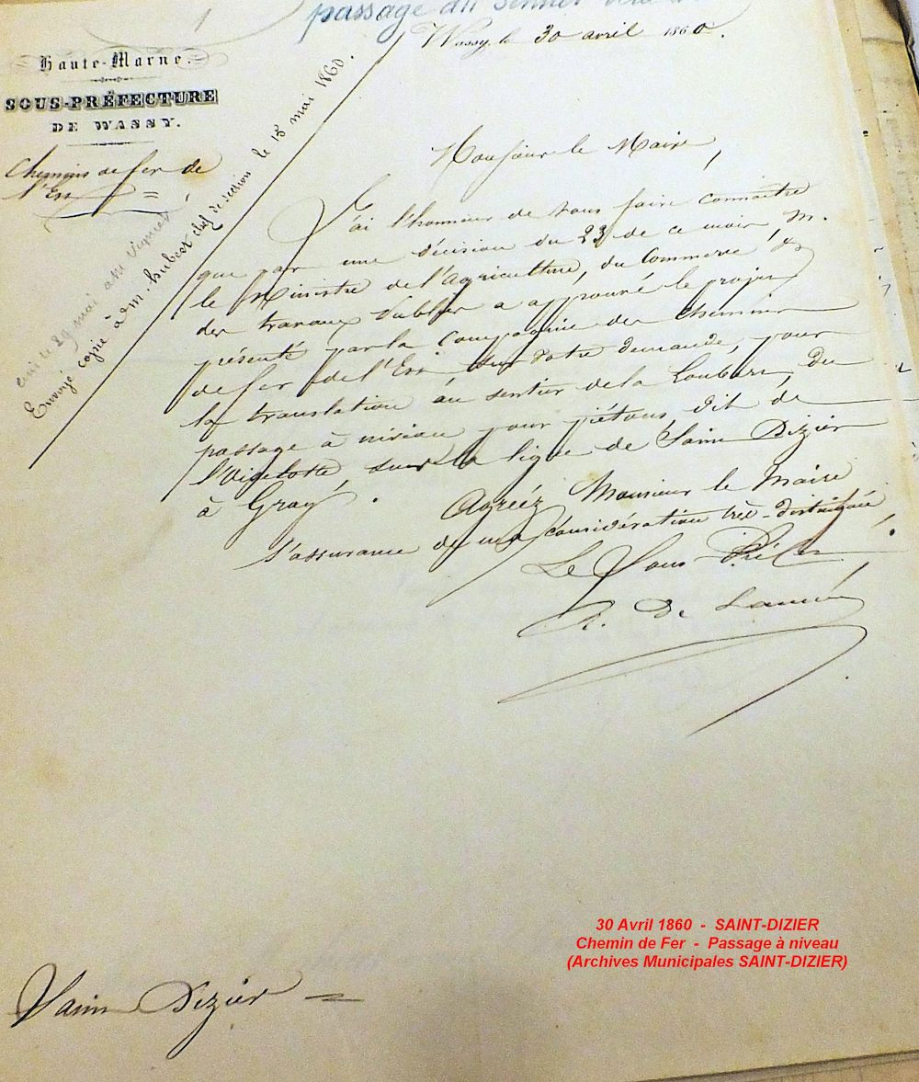 1
passage du sentier
Haute-Marne.
SOUS-PRÉFECTURE
DE WASSY.
Wassy, le 30 avril 1860.
Chemins de fer de
l'Est
Envoyé copie à M. hubert chef de section le 18 mai 1860.
Monsieur le Maire,
J'ai l'honneur de vous faire connaître
que par une décision du 23 de ce mois, M.
le Ministre de l'Agriculture, du Commerce &
des travaux Publics a approuvé le projet
présenté par la Compagnie des Chemins
de fer de l'Est sur votre demande, pour
la translation au sentier de la Loubert, du
passage à niveau pour piétons dit de
sur la ligne de Saint Dizier
à Gray.
Agréez Monsieur le Maire
l'assurance de ma considération très-distinguée.
Le Sous-Préfet
30 Avril 1860 - SAINT-DIZIER
Chemin de Fer - Passage à niveau
(Archives Municipales SAINT-DIZIER)
Saint Dizier